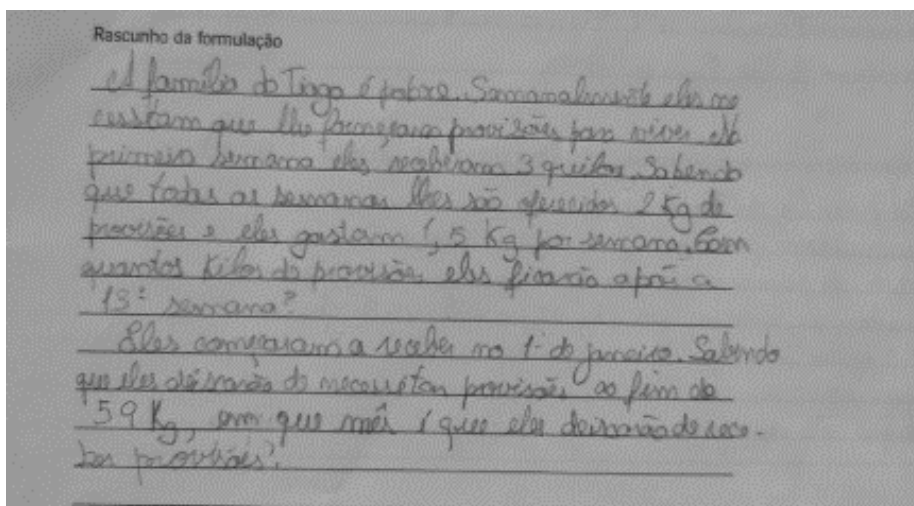 Rascunho da formulação
A família do Tiago é pobre. Semanalmente eles ne
cessitam que lhe forneçam provisões para viver. Na
primeira semana eles receberam 3 quilos. Sabendo
que todas as semanas lhes são oferecidos 2 Kg de
provisões e eles gastam 1,5 Kg por semana. Com
quantos Kilos de provisões eles ficarão após a
13ª semana?
Eles começaram a receber no 1º de janeiro. Sabendo
que eles deixarão de necessitar provisões ao fim de
59 Kg, em que mês é que eles deixarão de rece-
ber provisões?